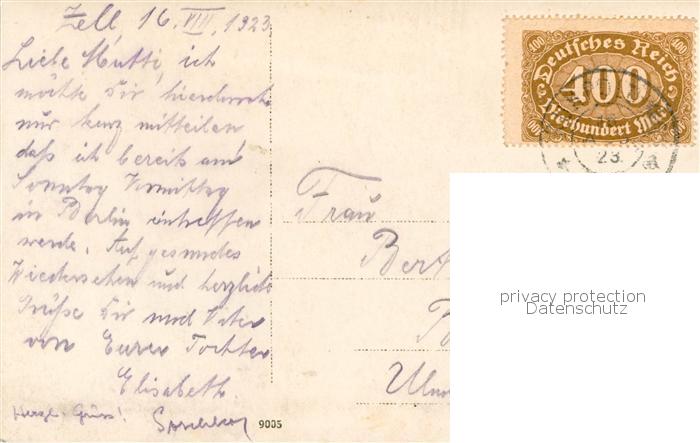 Zell, 16. VIII. 1923.
Liebe Mutti, ich
möchte Dir hierdurch
nur kurz mitteilen
daß ich bereits am
Sonntag Vormittag
in Berlin eintreffen
werde. Auf gesundes
Wiedersehen und herzliche
Grüße Dir und Vater
von Eurer Tochter
Elisabeth.
Herzl. Gruss!
9005
Frau
Bert
400 400
Deutsches Reich
400
Vierhundert Mark
400 400
23.
privacy protection
Datenschutz